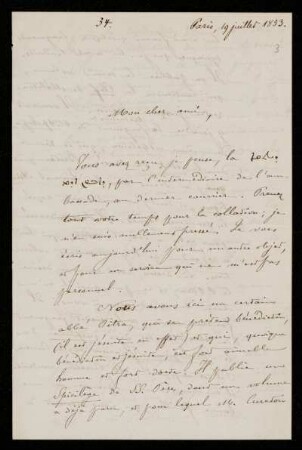 34.
Paris, 19 juillet 1853.
3
Mon cher ami,
Vous avez reçu, je pense, la
par l'intermédiaire de l'am-
bassade, au dernier courrier. Prenez
tout votre temps pour la collation; je
n'en suis nullement pressé. Je vous
écris aujourd'hui pour un autre objet,
et pour un service qui ne m'est pas
personnel.
Nous avons ici un certain
abbé Pitra, qui se prétend bénédictin,
(il est jésuite en effet) et qui, quoique
bénédictin et jésuite, est fort aimable
homme et fort docte. Il publie un
Spicilège de SS. Pères, dont un volume
a déjà paru, et pour lequel M. Cureton